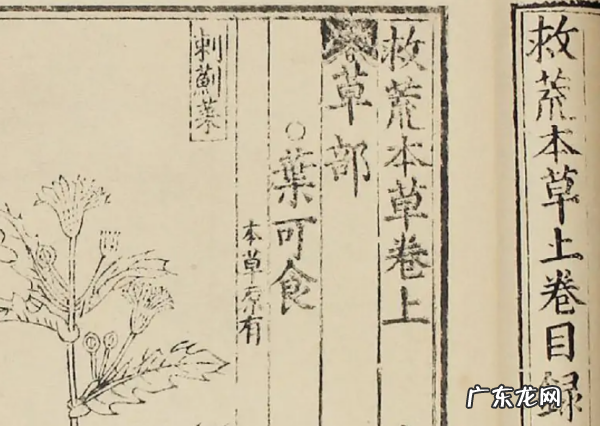 救荒本草上卷目録
救荒本草卷上
草部
○葉可食
本草原有
刺薊菜
广东龙网